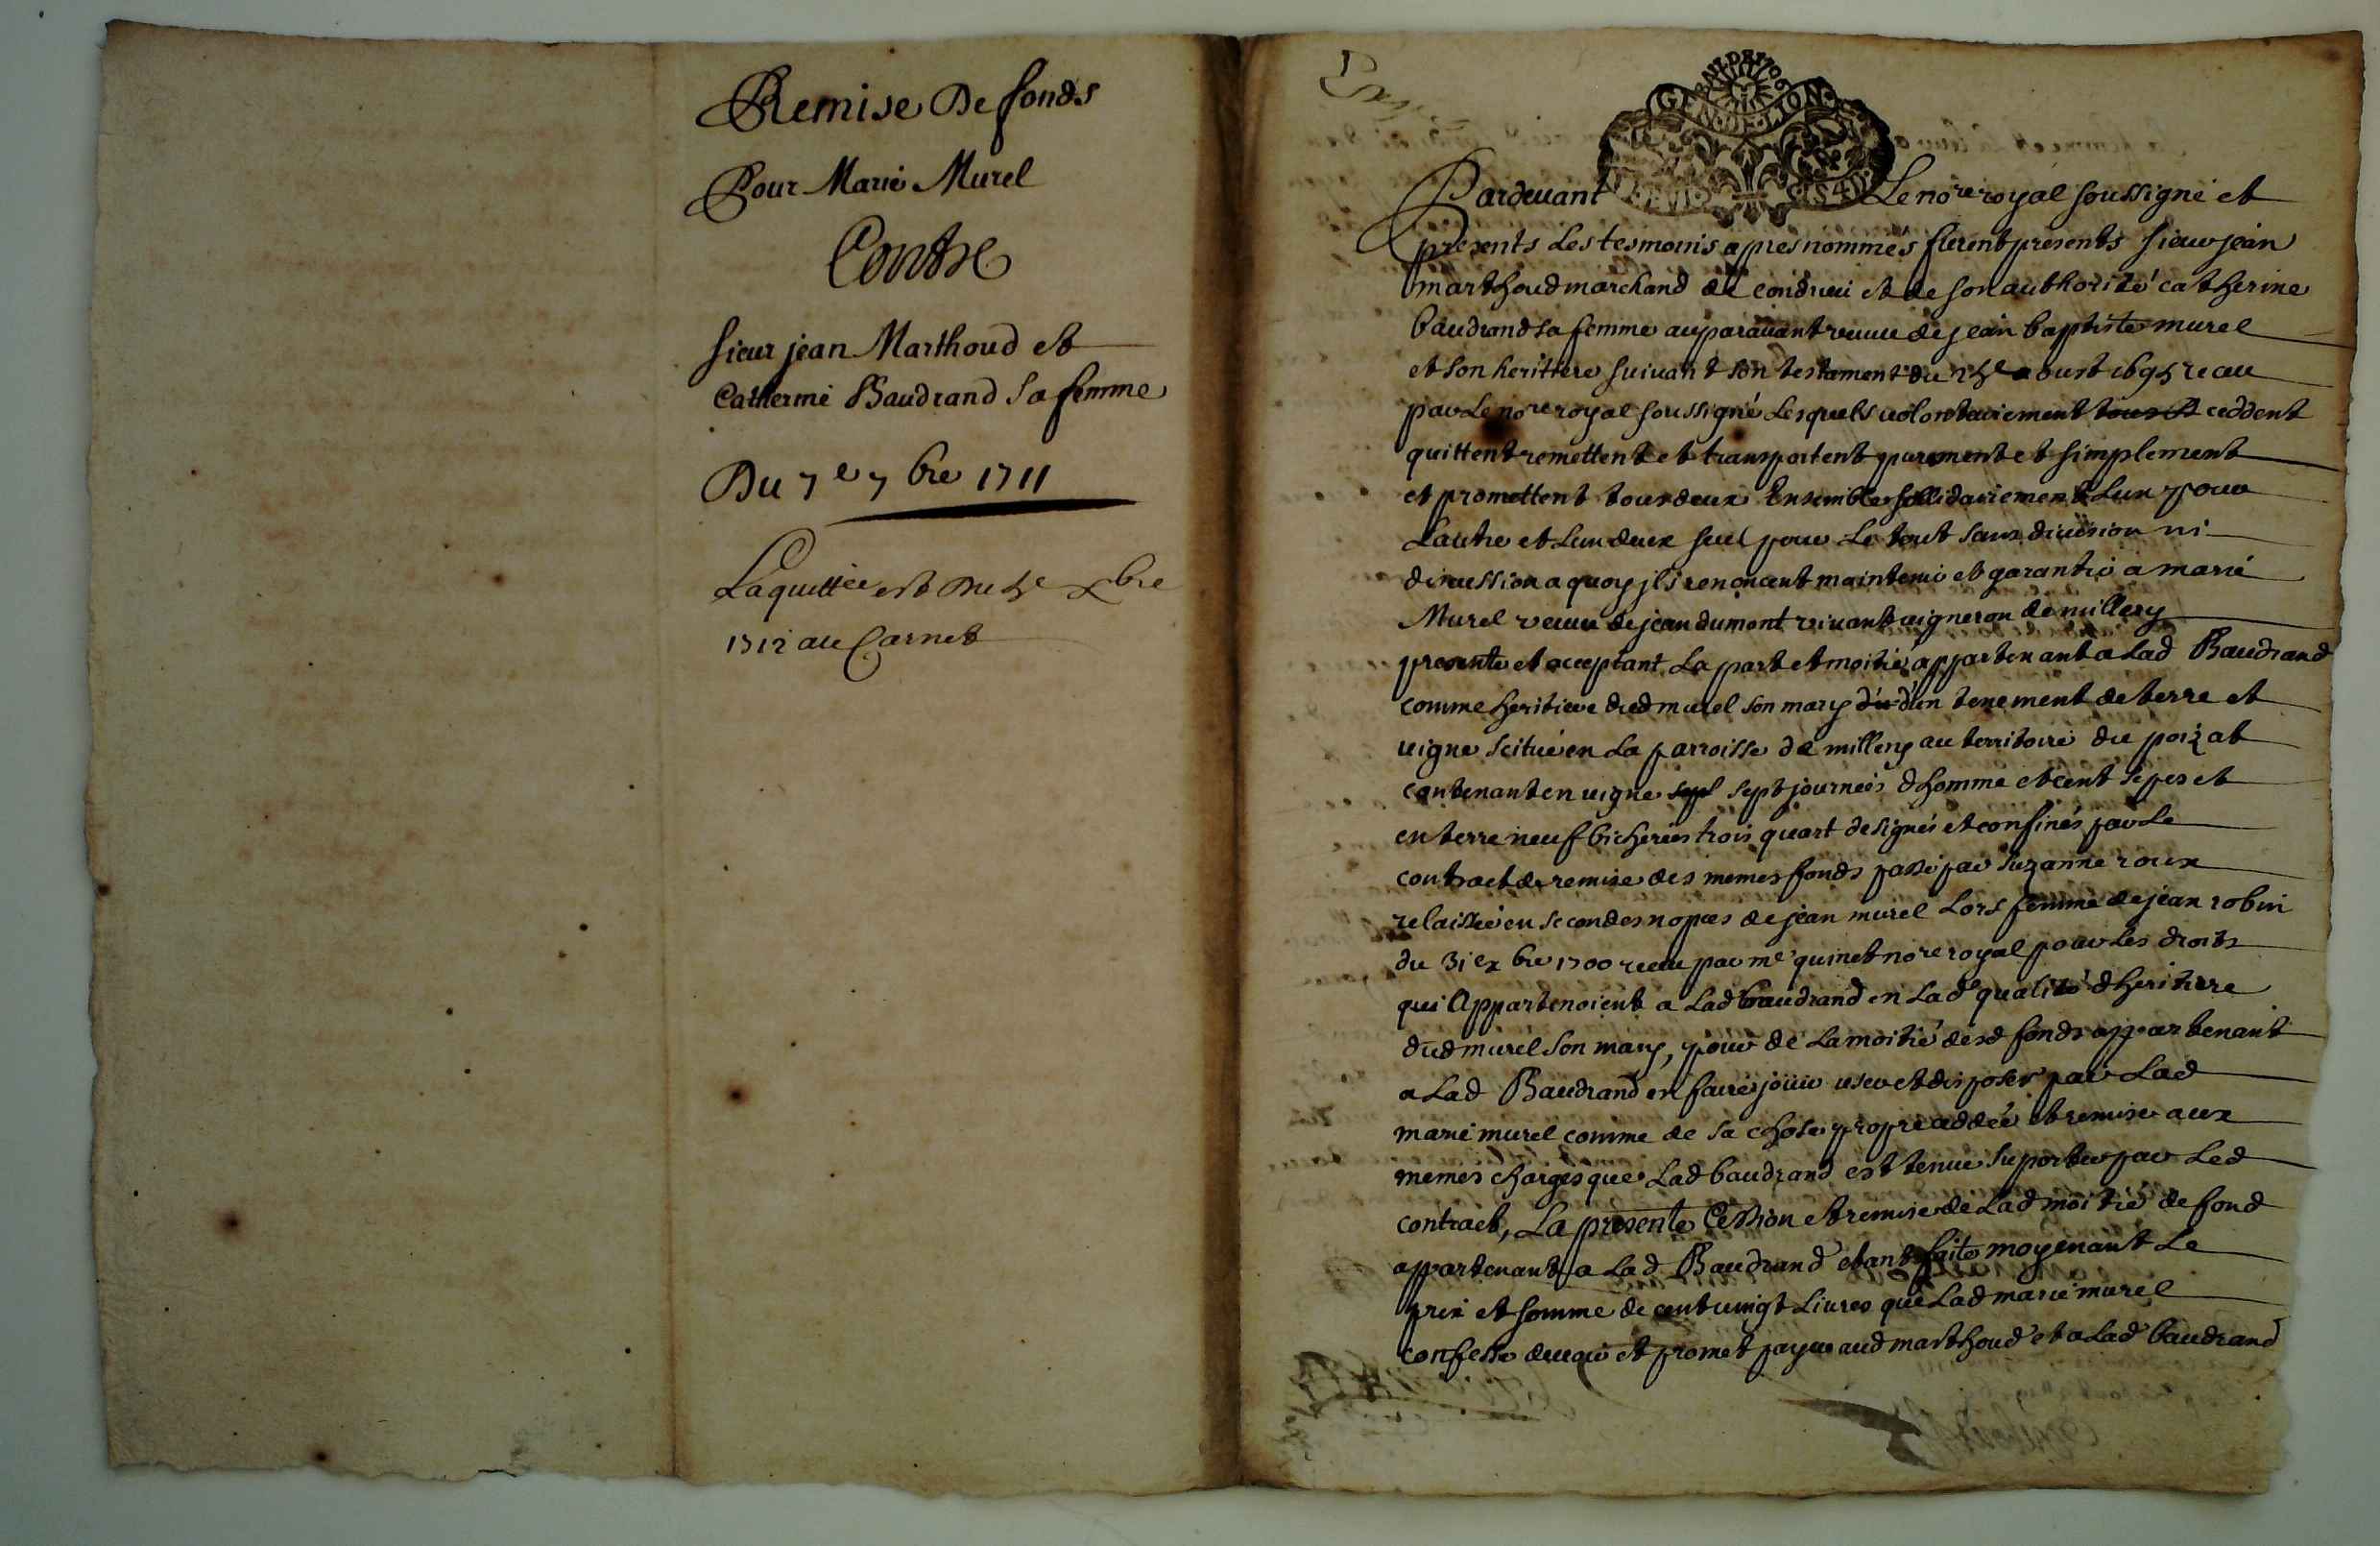 Remise De fonds
Pour Marie Murel
Contre
sieur jean Marthoud et
Catherine Baudrand sa femme
Du 7e 7bre 1711
Laquittée est du 5e xbre
1712 au Carnet
GENERAL
Pardevant Le nore royal soussigné et
presents Les tesmoins apres nommés furent presents sieur jean
marthoud marchand de condrieu et de son authorité catherine
baudrand sa femme auparavant veuve de jean baptiste murel
et son herittere suivant son testament du aoust 1695 receu
par Le nore royal soussigné Lesquels volontairement ceddent
quittent remettent et transportent purement et simplement
et promettent tous deux Ensemble sollidairement Lun pour
Lautre et Lun deux seul pour Le tout sans division ni
discussion a quoy jls renoncent maintenir et garantir a marie
Murel veuve de jean dumont vivant vigneron de millery
presente et acceptant La part et moitié appartenant a Lad Baudrand
comme heritiere dud murel son mary d'un tenement de terre et
vigne scitué en La parroisse de millery au territoire du poizat
contenant en vigne sept sept journées dhomme et cent sepes et
en terre neuf bicherées trois quart designés et confinés par Le
contract de remise des memes fonds passé par suzanne roux
relaissée en secondes nopces de jean murel Lors femme de jean robin
du 31e xbre 1700 receu par me quinet nore royal pour Les droits
qui Appartenoient a Lad baudrand en Lade qualité dheritiere
dud murel son mary, pour de La moitié desd fonds appartenant
a Lad Baudrand en faire jouir user et disposer par Lad
marie murel comme de sa chose propre aux
memes charges que Lad baudrand est tenue suporter par Led
contract, La presente Cession et remise de Lad moitié de fond
appartenant a Lad Baudrand etant faite moyenant Le
prix et somme de cent vingt Livres que Lad marie murel
confesse devoir et promet payer aud marthoud et a Lad baudrand